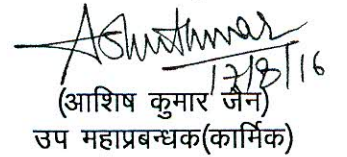 17/8/16
(आशिष कुमार जैन)
उप महाप्रबन्धक(कार्मिक)